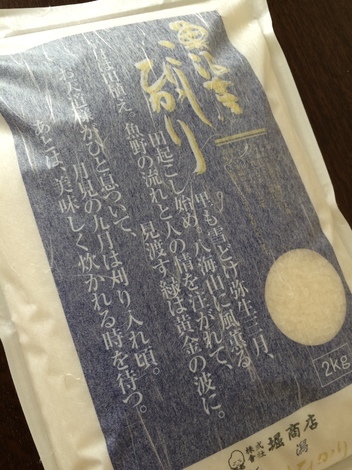 里も雪どけ弥生三月、
八海山に風薫る
田起こし始め
魚野の流れと人の情を注がれて、
見渡す緑は黄金の波に。
お天道様がひと息ついて、
月見の九月は刈り入れ頃。
あとは、美味しく炊かれる時を待つ。
2kg
株式会社 堀商店